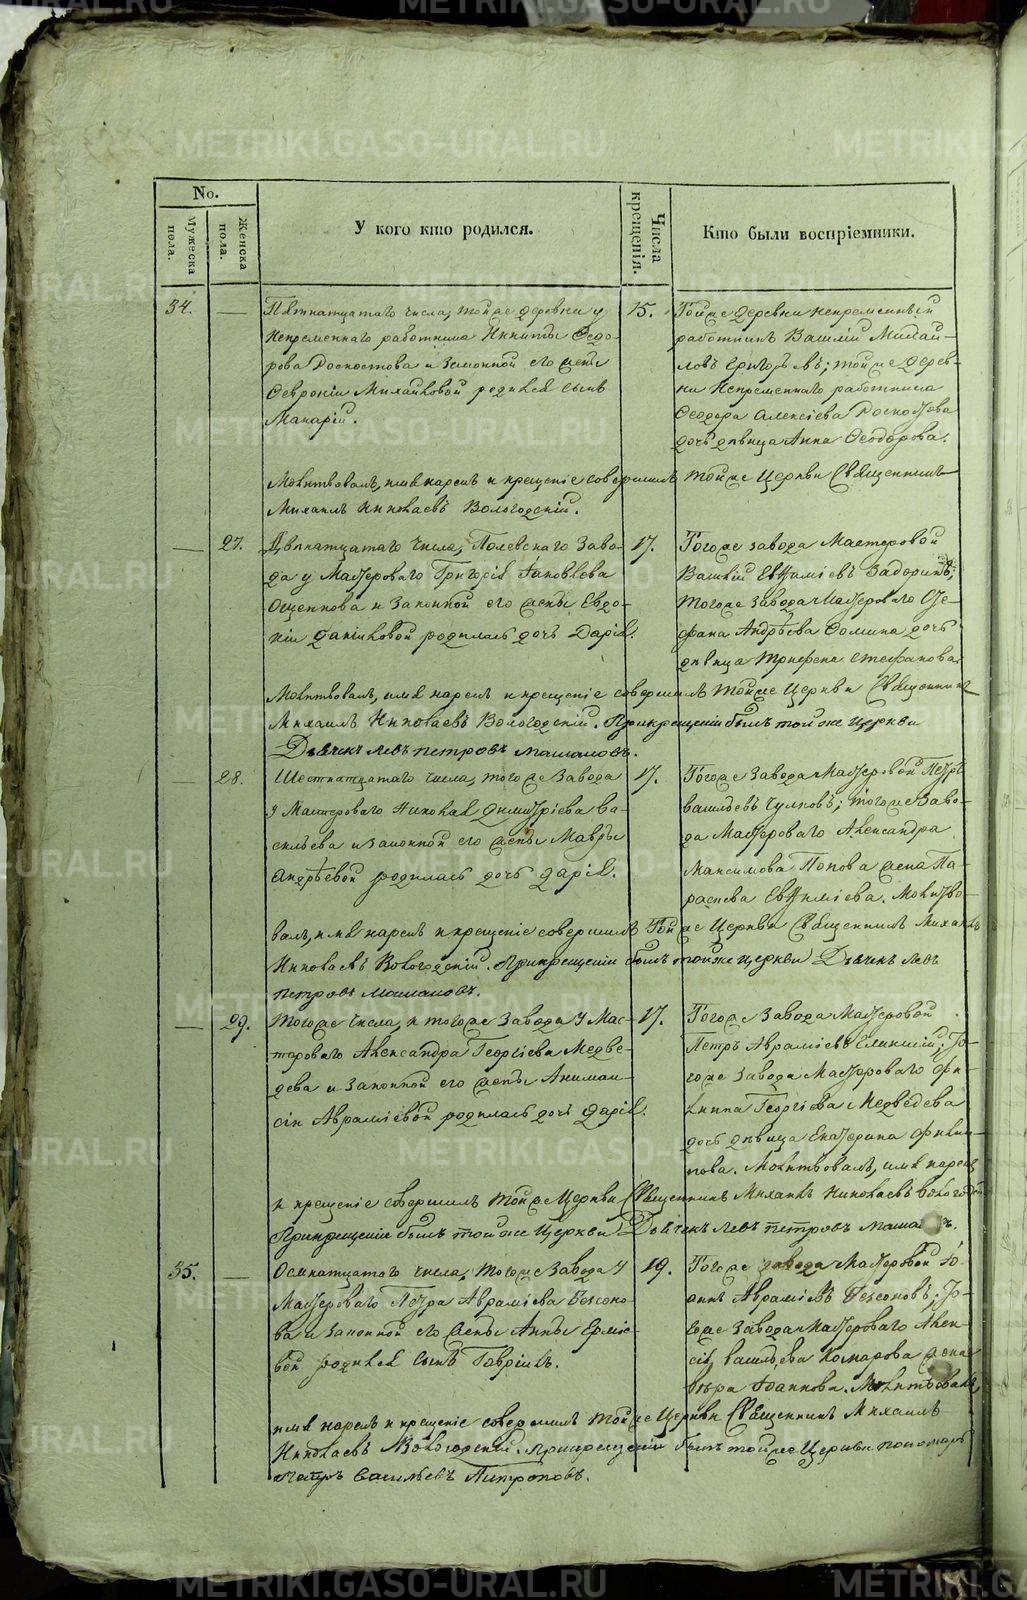 No.
Мужеска пола.
Женска пола.
У кого кто родился.
Числа крещенія.
Кто были воспріемники.
34.
—
Пятнатцатаго числа, тойже деревни у
непременнаго работника Никиты Федо-
рова Роскостова и законной его жены
Февроніи Михайловой родился сынъ
Макарій.
15.
Тойже деревни непременный
работникъ Василій Михай-
ловъ Григорьевъ; тойже дерев-
ни непременнаго работника
Феодора Алексіева Роскостова
дочь дѣвица Анна Феодорова.
Молитвовалъ, имя нарекъ и крещеніе совершилъ тойже Церкви Священникъ
Михаилъ Николаевъ Вологодскій.
—
27.
Двѣнатцатаго числа, Полевскаго Заво-
да у Мастероваго Григорія Яковлева
Ощепкова и законной его жены Евдо-
кіи Даниловой родилась дочь Дарія.
17.
Тогоже завода Мастеровой
Василій Евфиміевъ Задоринъ;
тогоже завода Мастероваго Сте-
фана Андреева Фомина дочь
дѣвица Трифена Стефанова.
Молитвовалъ, имя нарекъ и крещеніе совершилъ тойже Церкви Священникъ
Михаилъ Николаевъ Вологодскій. При крещеніи былъ той же церкви
Дьячекъ Левъ Петровъ Машановъ.
—
28.
Шестнатцатаго числа, тогоже завода
у Мастероваго Николая Димитріева Ва-
сильева и законной его жены Мавры
Андреевой родилась дочь Дарія.
17.
Тогоже завода Мастеровой Петръ
Васильевъ Чулковъ; тогоже Заво-
да Мастероваго Александра
Максимова Попова жена Па-
раскева Евфиміева. Молитво-
валъ, имя нарекъ и крещеніе совершилъ Тойже Церкви Священникъ Михаилъ
Николаевъ Вологодскій. При крещеніи былъ тойже церкви Дьячекъ Левъ
Петровъ Машановъ.
—
29.
Тогоже числа, и тогоже Завода у Мас-
тероваго Александра Георгіева Медве-
дева и законной его жены Анимаи-
сіи Авраміевой родилась дочь Дарія.
17.
Тогоже Завода Мастеровой
Петръ Авраміевъ; То-
гоже Завода Мастероваго Фи-
липпа Георгіева Медведева
дочь дѣвица Екатерина Филип-
пова. Молитвовалъ, имя нарекъ
и крещеніе совершилъ тойже Церкви Священникъ Михаилъ Николаевъ Вологодскій
При крещеніи былъ той же Церкви Дьячекъ Левъ Петровъ Машановъ.
35.
—
Осмнатцатаго числа, тогоже Завода у
Мастероваго Петра Авраміева Бессоно-
ва и законной его жены Анны Ерміе-
вой родился сынъ Гавріилъ.
19.
Тогоже завода Мастеровой Іо-
аннъ Авраміевъ Бессоновъ; То-
гоже Завода Мастероваго Алек-
сія Васильева Комарова жена
Вѣра Іоаннова. Молитвовалъ,
имя нарекъ и крещеніе совершилъ тойже Церкви Священникъ Михаилъ
Николаевъ Вологодскій. При крещеніи былъ тойже Церкви пономарь
Петръ Васильевъ Антроповъ.
METRIKI.GASO-URAL.RU